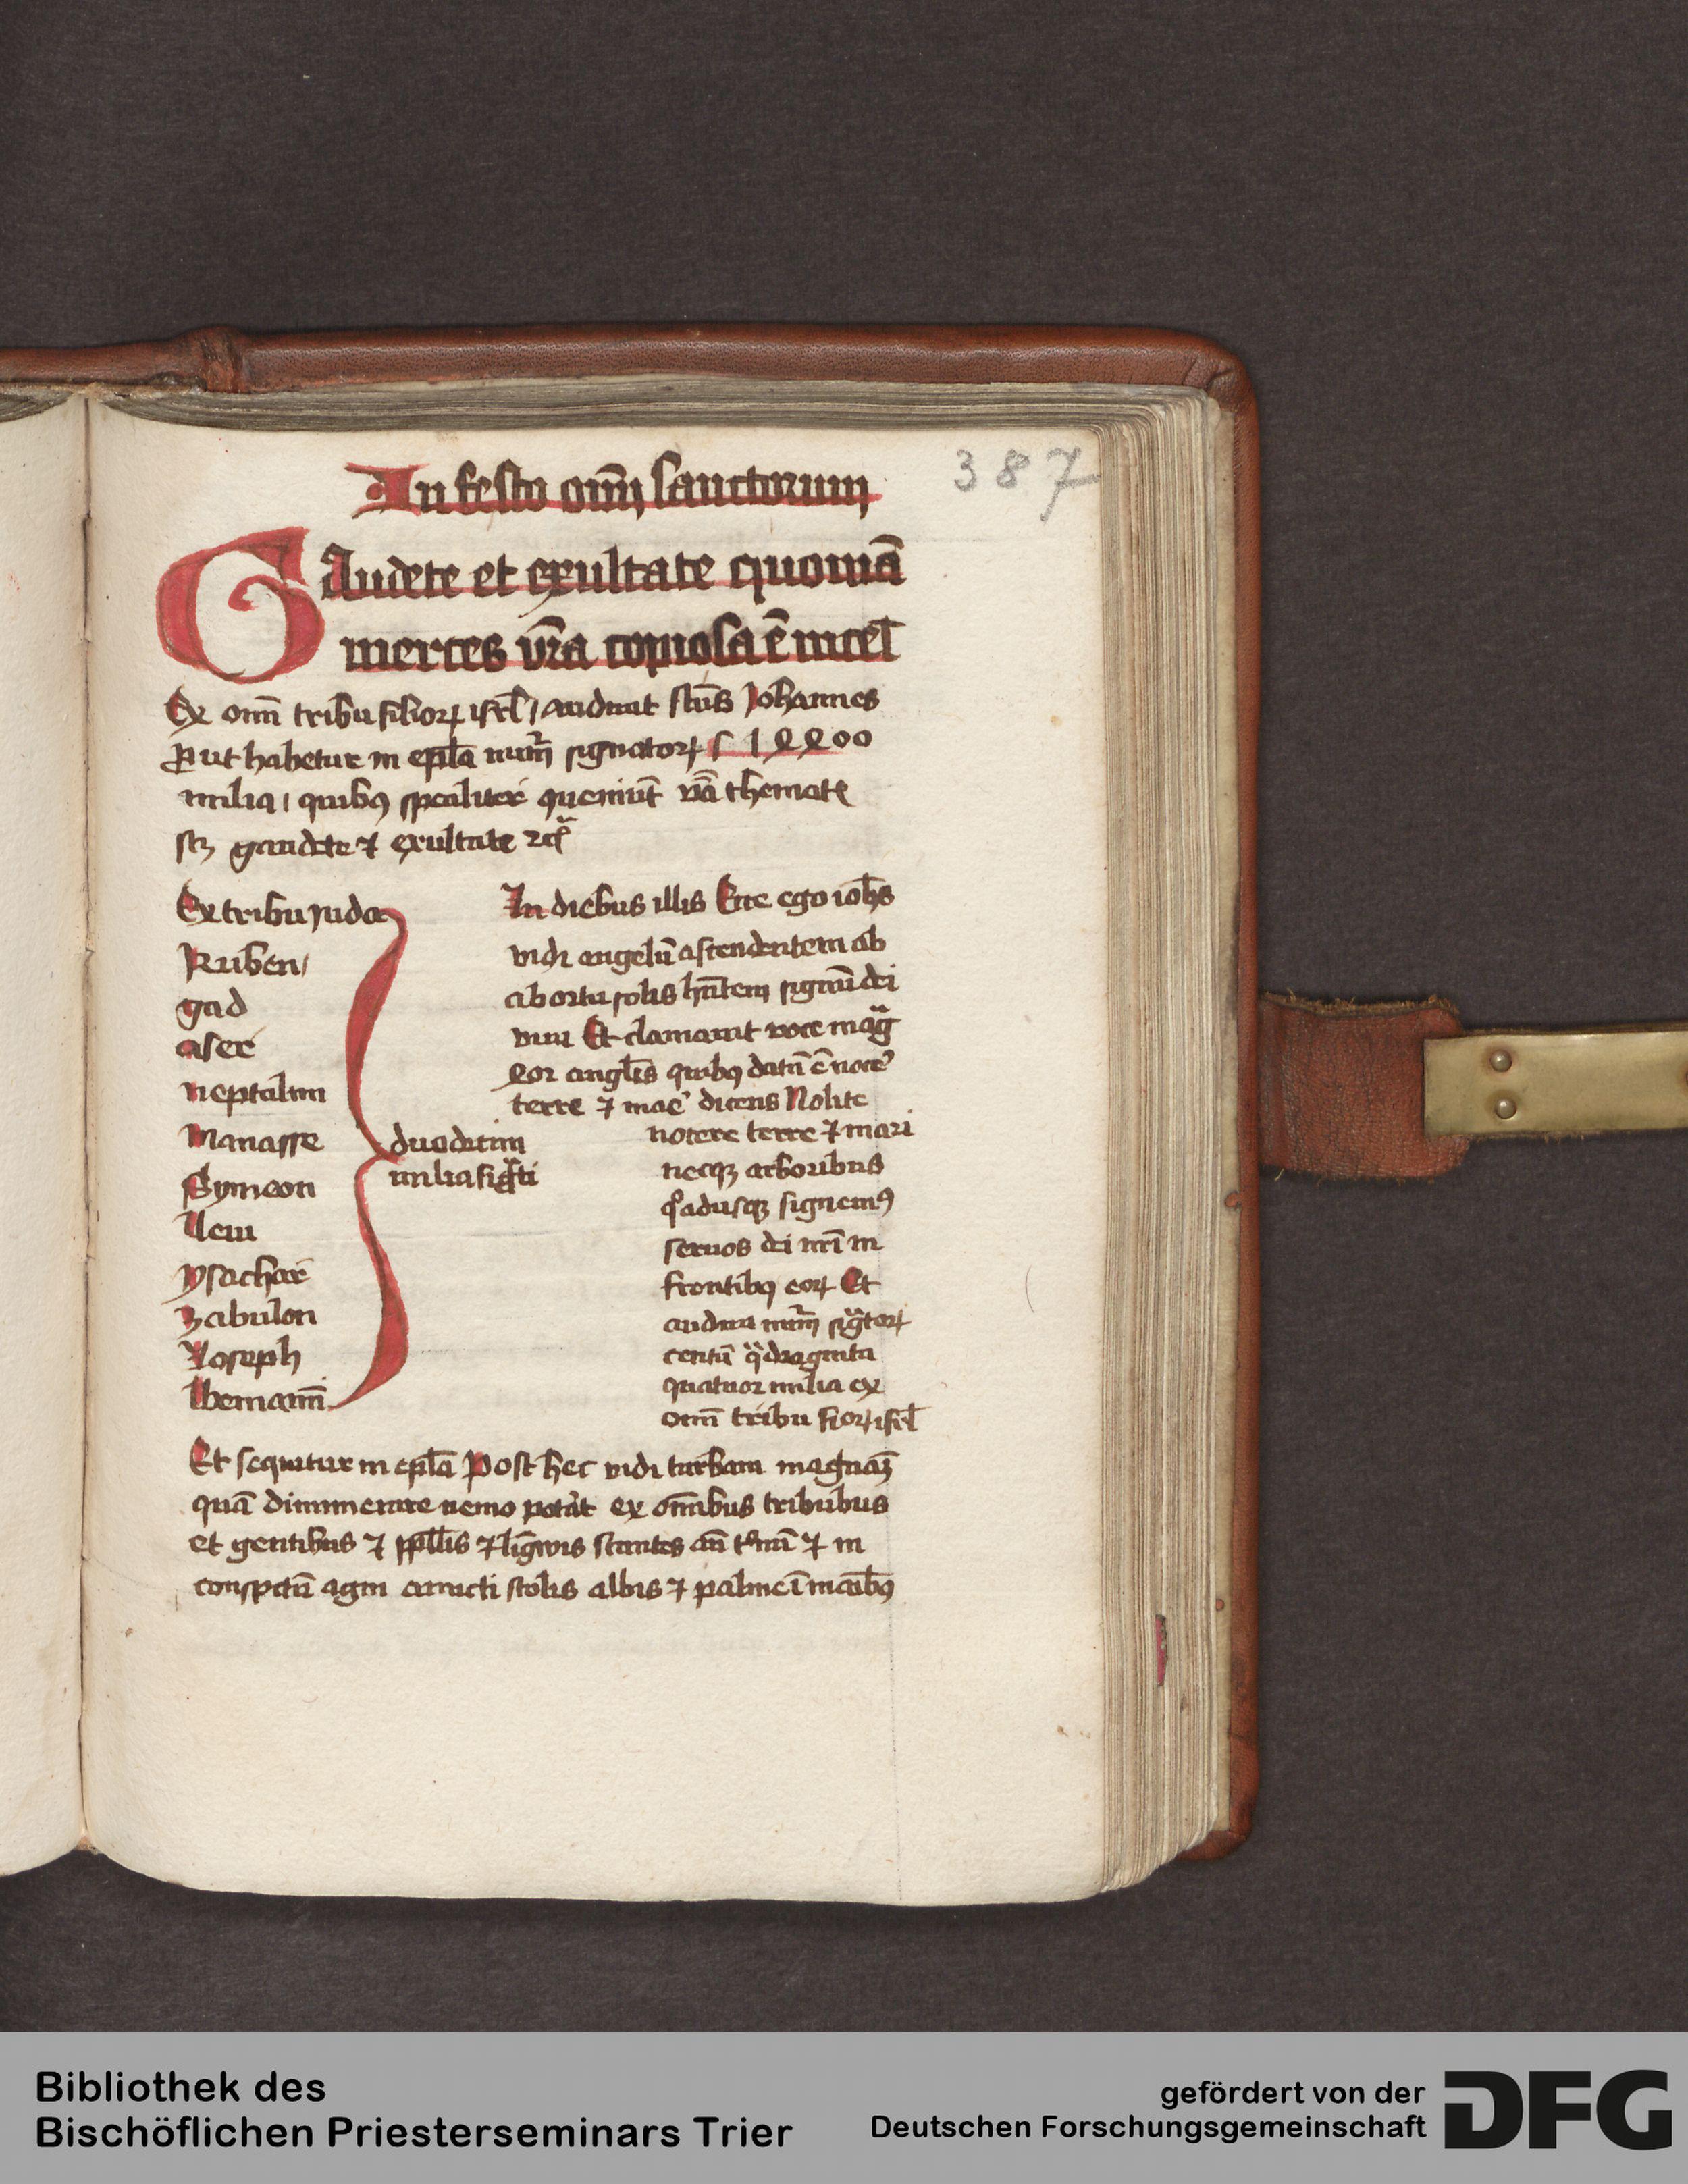 387
In festo om̄ sanctorum
Gaudete et exultate quoniā
merces vr̄a copiosa ē in cel̄
Ex omī tribu filioꝝ isrl̄ / audiuit sctūs Johannes
Put habetur in epl̄a num̄ signatoꝝ
milia / quibꝫ specialiter queniūt thematꝭ
scꝫ gaudete ⁊ exultate ⁊cͣ
Ex tribu iuda
Ruben /
gad
aser
neptalim
Manasse
Symeon
Leui
ysachar
zabulon
Yoseph
beniamī
duodecim
milia sigͣti
In diebus illis Ecce ego ioh̄s
vidi angelū ascendentem ab
ab ortu solis hn̄tem signū dei
viui Et clamauit voce magͣ
angl̄is quibꝫ datū ē nocē
terre ⁊ maē dicens Nolite
nocere terre ⁊ mari
necqꝫ arboribus
qͦadusqꝫ signemꝰ
seruos dei nrī in
frontibꝫ eoꝝ Et
audiui num̄ sigͣtoꝝ
centū qͣdraginta
quatuor milia ex
omī tribu fioꝝ isrl̄
Et sequitur in epl̄a Post hec vidi turbam magnaꝫ
quā dinumerare nemo potāt ex om̄ibus tribubus
et gentibus ⁊ ppl̄is ⁊ līgwis stantes an̄ tͪnū ⁊ in
conspctū agni amicti stolis albis ⁊ palme ī manibꝫ
Bibliothek des
Bischöflichen Priesterseminars Trier
gefördert von der
Deutschen Forschungsgemeinschaft
DFG